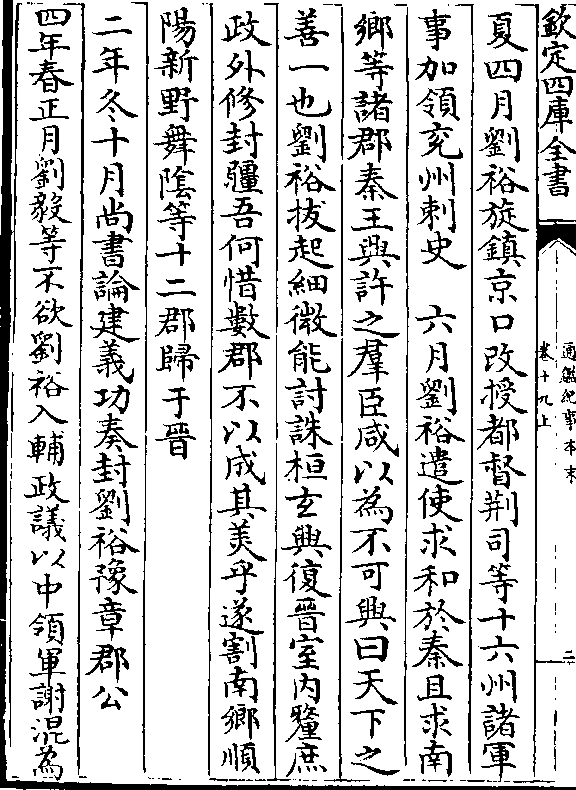 欽定四庫全書
通鑑紀事本末
卷十九上
二
夏四月劉裕旋鎮京口改授都督荆司等十六州諸軍
事加領兖州刺史　六月劉裕遣使求和於秦且求南
鄉等諸郡秦王興許之羣臣咸以為不可興曰天下之
善一也劉裕拔起細微能討誅桓玄興復晉室内釐庶
政外修封疆吾何惜數郡不以成其美乎遂割南鄉順
陽新野舞陰等十二郡歸于晉
二年冬十月尚書論建義功奏封劉裕豫章郡公
四年春正月劉毅等不欲劉裕入輔政議以中領軍謝混為